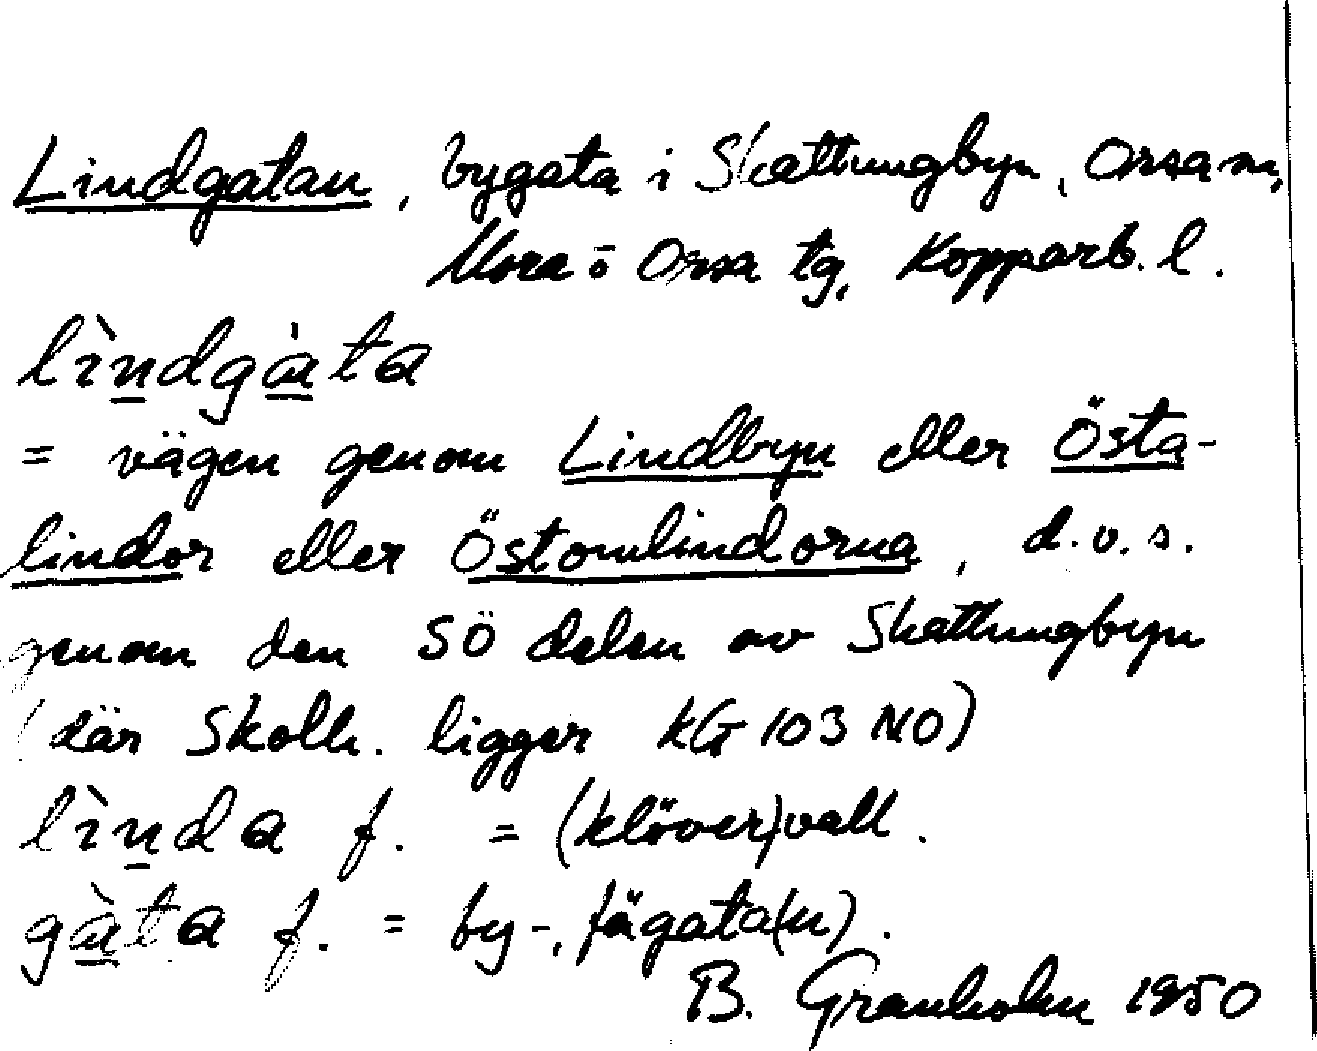 Lindgatan, bygata i Skattungbyn, Orsa sn,
Mora o Orsa tg, Kopparb. l.
lìndgàta
= vägen genom Lindbyn eller Östa-
lindor eller Östomlindorna, d.v.s.
genom den SÖ delen av Skattungbyn
(där Skolh. ligger KG 103 NO)
lìnda f. = (klöver)vall.
gàta f. = by-, fägata(n).
B. Granholm 1950